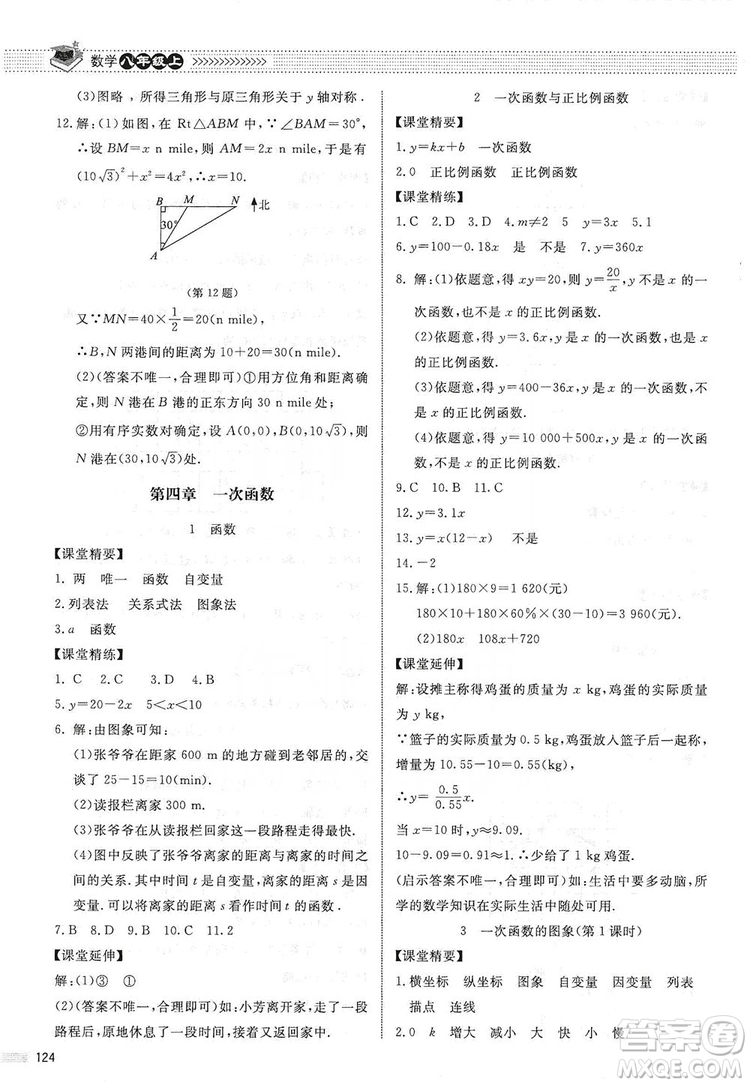 数学八年级上
(3)图略，所得三角形与原三角形关于 y 轴对称.
12.解:(1)如图,在 Rt△ABM 中,∵∠BAM=30°,
∴设 BM=x n mile,则 AM=2x n mile,于是有
(10√3)²+x²=4x²,∴x=10.
B M N 北
30°
A
(第 12 题)
又∵MN=40×1/2=20(n mile),
∴B,N 两港间的距离为 10+20=30(n mile).
(2)(答案不唯一,合理即可)①用方位角和距离确
定,则 N 港在 B 港的正东方向 30 n mile 处;
②用有序实数对确定,设 A(0,0),B(0,10√3),则
N 港在(30,10√3)处.
第四章 一次函数
1 函数
【课堂精要】
1. 两 唯一 函数 自变量
2.列表法 关系式法 图象法
3.a 函数
【课堂精练】
1. C 2. D 3. D 4. B
5.y=20-2x 5<x<10
6. 解:由图象可知:
(1)张爷爷在距家 600 m 的地方碰到老邻居的,交
谈了 25-15=10(min).
(2)读报栏离家 300 m.
(3)张爷爷在从读报栏回家这一段路程走得最快.
(4)图中反映了张爷爷离家的距离与离家的时间之
间的关系.其中离家的时间 t 是自变量,距离 s 是因
变量.可以将离家的距离 s 看作时间 t 的函数.
7. B 8. D 9. D 10. C 11.2
【课堂延伸】
解:(1)③ ①
(2)(答案不唯一,合理即可)如:小芳离开家,走了一段
路程后,原地休息了一会儿,又接着往前走直至图书馆.
124
2 一次函数与正比例函数
【课堂精要】
1.y=kx+b 一次函数
2.0 正比例函数 正比例函数
【课堂精练】
1. C 2. D 3. D 4.m≠2 5 y=3x 5.1
6.y=100-0.18x 是 不是 7.y=360x
8. 解:(1)依题意,得 xy=20,则 y=20/x,y 不是 x 的一
次函数,也不是 x 的正比例函数.
(2)依题意,得 y=3.6x,y 是 x 的一次函数,也是 x
的正比例函数.
(3)依题意,得 y=400-36x,y 是 x 的一次函数,不
是 x 的正比例函数.
(4)依题意,得 y=10 000+500x,y 是 x 的一次函
数,不是 x 的正比例函数.
9.C 10.B 11.C
12.y=3.1x
13.y=x(12-x) 不是 不是
14.-2
15.解:(1)180×9=1 620(元)
180×10+180×60%×(30-10)=3 960(元).
(2)180x 108x+720
【课堂延伸】
解:设摊主称得鸡蛋的质量为 x kg,鸡蛋的实际质量
为 y kg,
∵篮子的实际质量为 0.5 kg,鸡蛋放入篮子后一起称,
增量为 10.55-10=0.55(kg),
∴y=0.5/0.55x.
当 x=10 时,y≈9.09.
10-9.09=0.91(kg).∴少给了 1 kg鸡蛋.
(启示答案不唯一,合理即可)如:生活中要多动脑,所
学的数学知识在生活中随处可用.
3 一次函数的图象(第 1 课时)
【课堂精要】
1. 横坐标 纵坐标 图象 自变量 因变量 列表
描点 连线
2.0 k 增大 减小 大 快 小 慢
答案圈
MXQE.COM